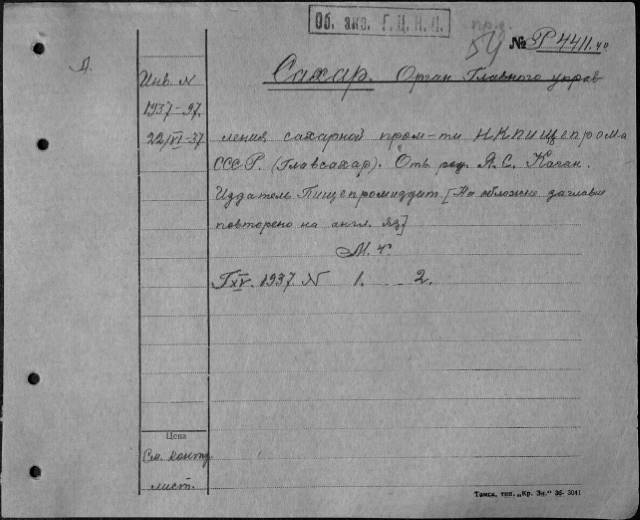 Об. экз. Г.Ц.К.П.
№ Р 4411.40
Д.
Инв. N
1937-97.
22/VI-37
Сахар. Орган Главного управ
ления сахарной пром-ти НКПищепрома
СССР. (Главсахар). Отв. ред. Я. С. Каган.
Издатель Пищепромиздат. [На обложке заглавие
повторено на англ. яз]
М. ч.
Г XV. 1937. N 1. 2.
Цена
См. контр
лист.
Томск, тип. „Кр. Зн." 36- 3041